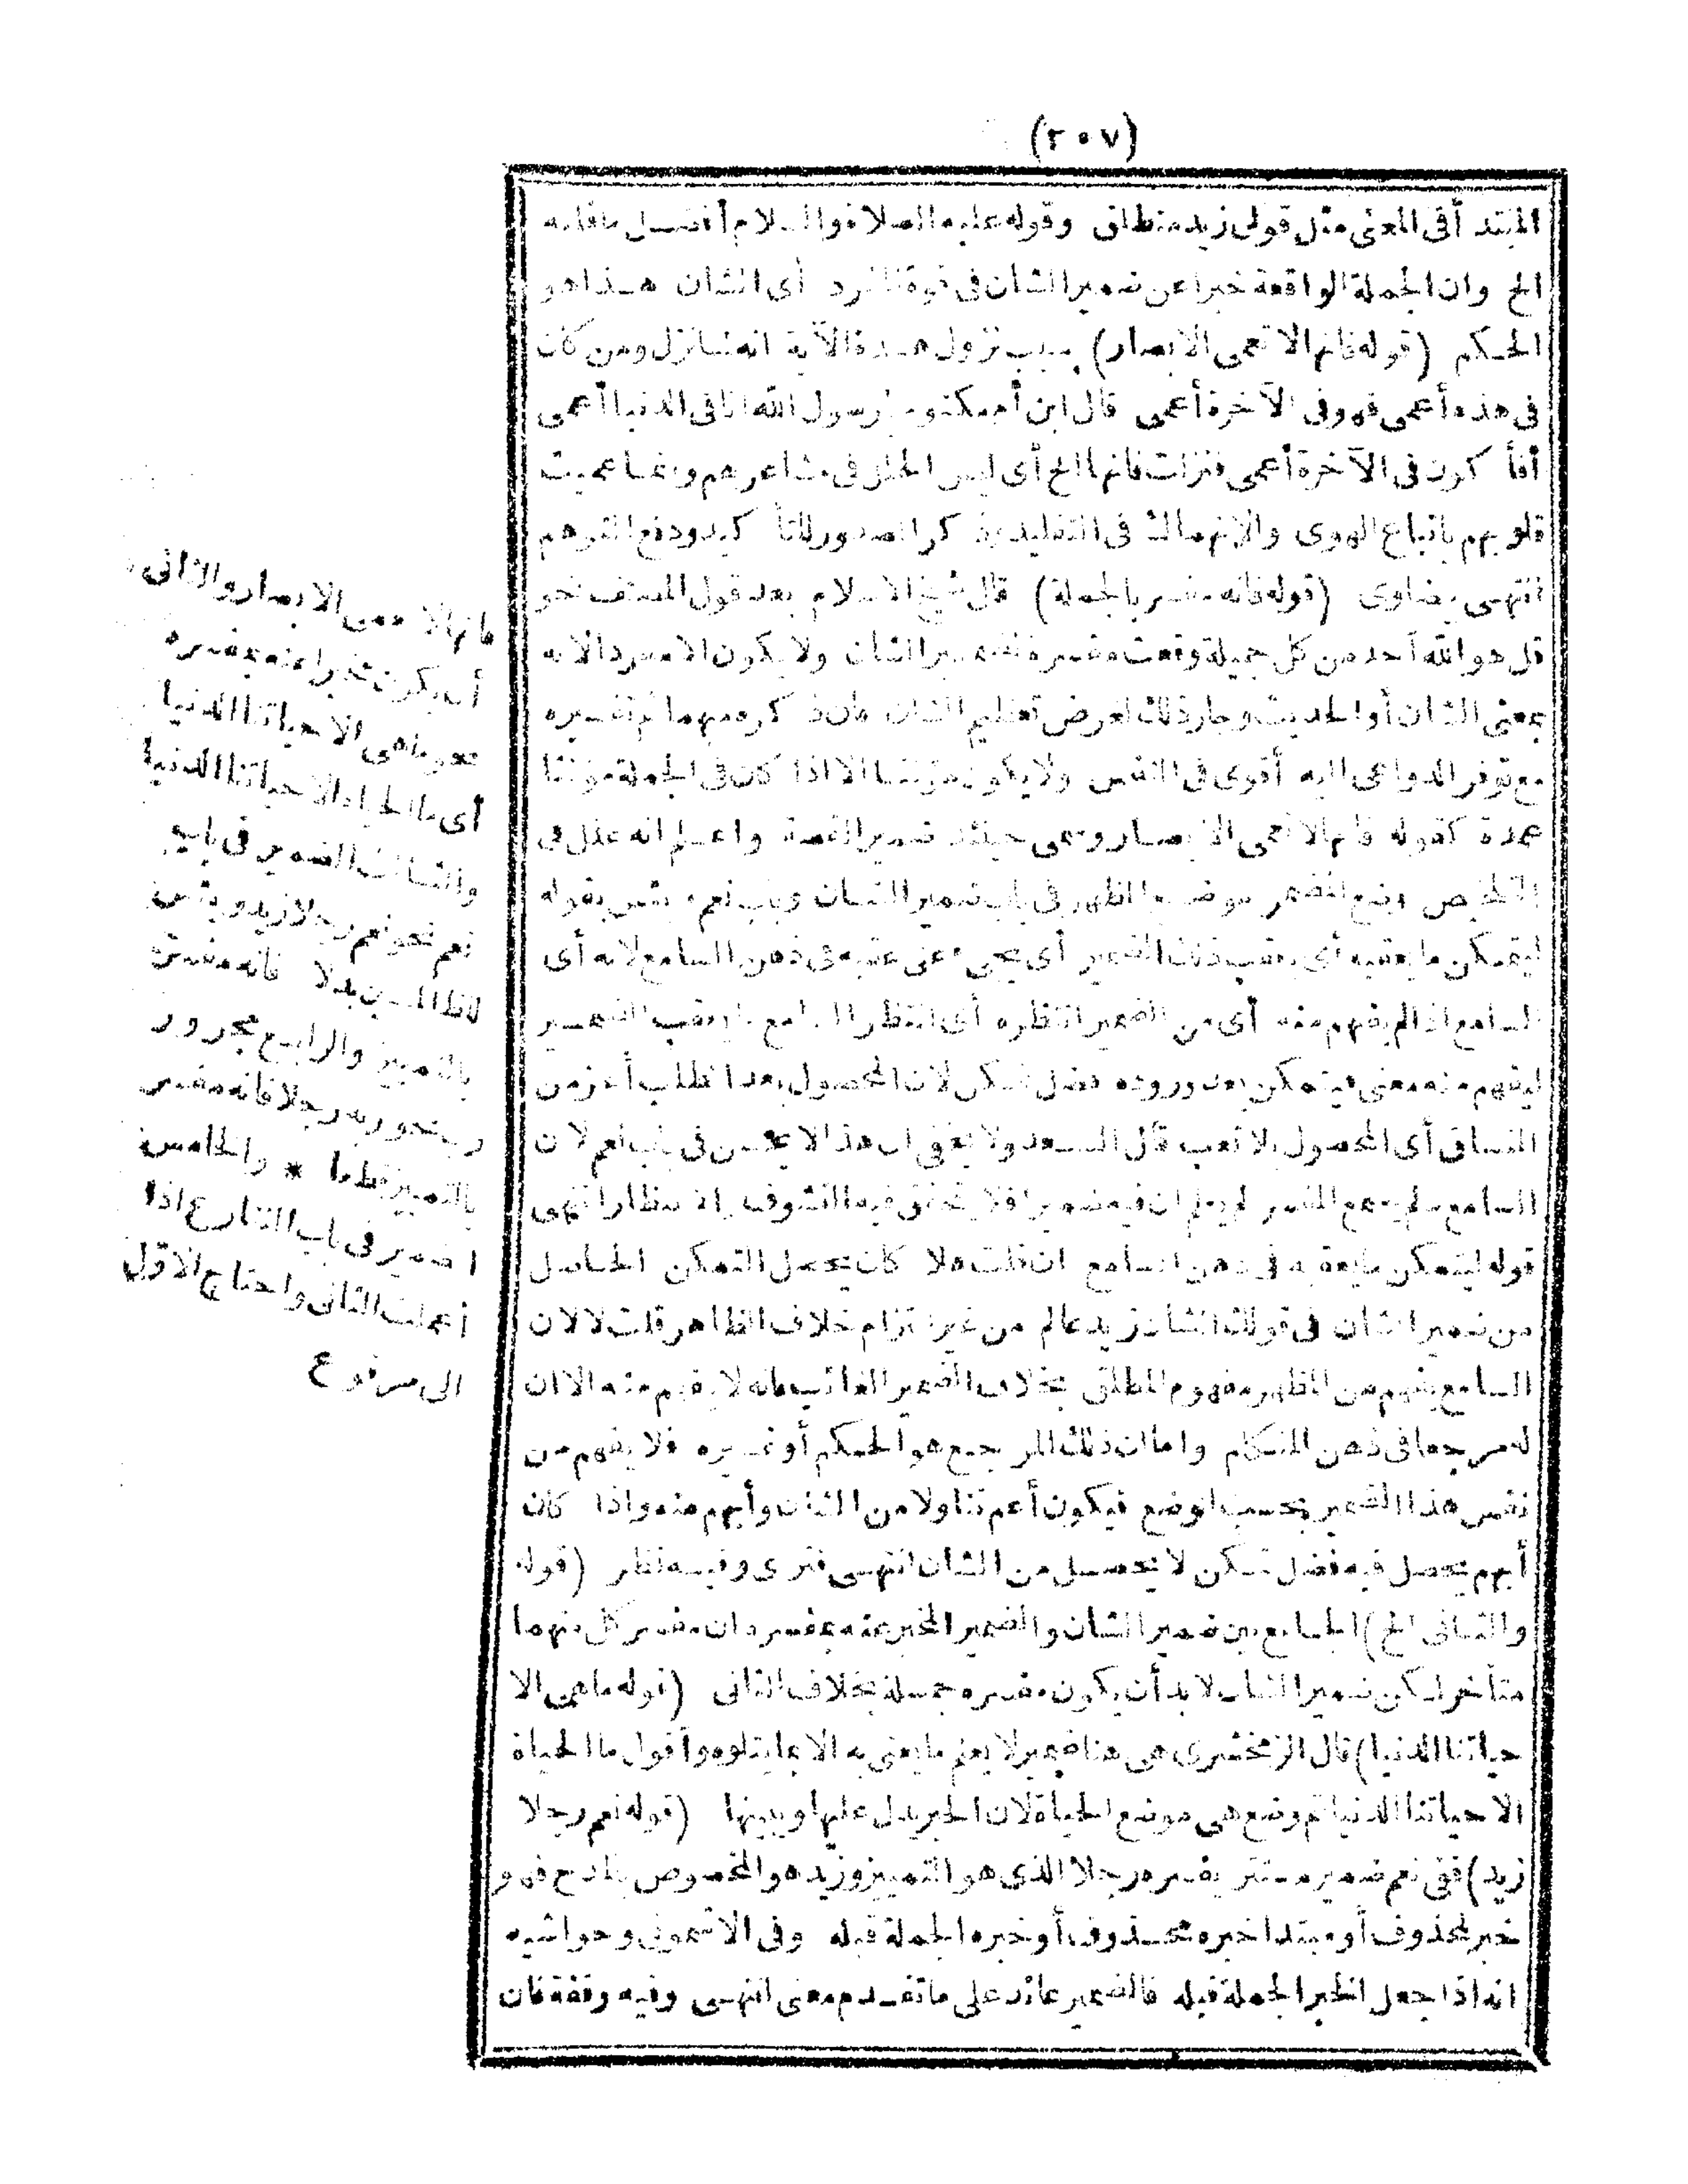 (٢٠٧)
المبتدأ فى المعنى مثل قولى زيد منطلق وقوله عليه الصلاة والسلام أفضل ما قلته
الخ وان الجملة الواقعة خبرا عن ضمير الشان فى قوة المفرد أى الشان هذا هو
الحكم (قوله فانها لا تعمى الابصار) سبب نزول هذه الآية انه لما نزل ومن كان
فى هذه أعمى فهو فى الآخرة أعمى قال ابن أم مكتوم يا رسول الله انا فى الدنيا أعمى
أفأكون فى الآخرة أعمى فنزلت فانها الخ أى ليس الخلل فى مشاعرهم وانما عميت
قلوبهم باتباع الهوى والانهماك فى التقليد وذكر الصدور للتأكيد ودفع التوهم
انتهى بيضاوى (قوله فانه مفسر بالجملة) قال شيخ الاسلام بعد قول المصنف نحو
قل هو الله أحد من كل جملة وقعت مفسرة لضمير الشان ولا يكون الا مفردا لانه
بمعنى الشان أو الحديث وجاز ذلك لغرض تعظيم الشان فان ذكره مبهما ثم تفسيره
مع توفر الدواعى اليه أقوى فى النفس ولا يكون مؤنثا الا اذا كان فى الجملة مؤنثا
عمدة كقوله فانها لا تعمى الابصار وسمى حينئذ ضمير القصة واعلم انه علل فى
التلخيص وضع المضمر موضع المظهر فى باب ضمير الشان وباب نعم وبئس بقوله
ليتمكن ما يعقبه أى يعقب ذلك الضمير أى يجىء على عقبه فى ذهن السامع لانه أى
السامع اذا لم يفهم منه أى من الضمير انتظره أى انتظر السامع ما يعقب الضمير
ليفهم منه معنى فيتمكن بعد وروده فضل تمكن لان المحصول بعد الطلب أعز من
المنساق أى المحصول بلا تعب قال السعد ولا يخفى ان هذا لا يحسن فى باب نعم لان
السامع ما لم يسمع المفسر لم يعلم ان فيه ضميرا فلا يتحقق فيه التشوف والانتظار انتهى
قوله ليتمكن ما يعقبه فى ذهن السامع ان قلت هلا كان يحصل التمكن الحاصل
من ضمير الشان فى قولك الشان زيد عالم من غير التزام خلاف الظاهر قلت لا لان
السامع يفهم من المظهر مفهوم المطلق بخلاف الضمير الغائب فانه لا يفهم منه الا ان
له مرجعا فى ذهن المتكلم واما ان ذلك المرجع هو الحكم أو غيره فلا يفهم من
نفس هذا الضمير بحسب الوضع فيكون أعم تناولا من الشان وأبهم منه واذا كان
أبهم يحصل فيه فضل تمكن لا يحصل من الشان انتهى فنرى وفيه نظر (قوله
والثانى الخ) الجامع بين ضمير الشان والضمير المخبر عنه بمفسره ان مفسر كل منهما
متأخر لكن ضمير الشان لا بد أن يكون مفسره جملة بخلاف الثانى (قوله ما هى الا
حياتنا الدنيا) قال الزمخشرى هى هنا ضمير لا يعلم ما يعنى به الا بما يتلوه وأقول ما الحياة
الا حياتنا الدنيا ثم وضع هى موضع الحياة لان الخبر يدل عليها ويبينها (قوله نعم رجلا
زيد) ففى نعم ضمير مستتر يفسره رجلا الذى هو التمييز وزيد هو المخصوص بالمدح فهو
خبر لمحذوف أو مبتدا خبره محذوف أو خبره الجملة قبله وفى الاشمونى وحواشيه
انه اذا جعل الخبر الجملة قبله فالضمير عائد على ما تقدم معنى انتهى وفيه وقفة فان
فانها لا تعمى الابصار والثانى
أن يكون مخبرا عنه بمفسره
نحو ما هى الا حياتنا الدنيا
أى ما الحياة الا حياتنا الدنيا
والثالث الضمير فى باب
نعم نحو نعم رجلا زيد وبئس
للظالمين بدلا فانه مفسر
بالتمييز والرابع مجرور
رب نحو ربه رجلا فانه مفسر
بالتمييز قطعا * والخامس
الضمير فى باب التنازع اذا
أعملت الثانى واحتاج الاول
الى مرفوع